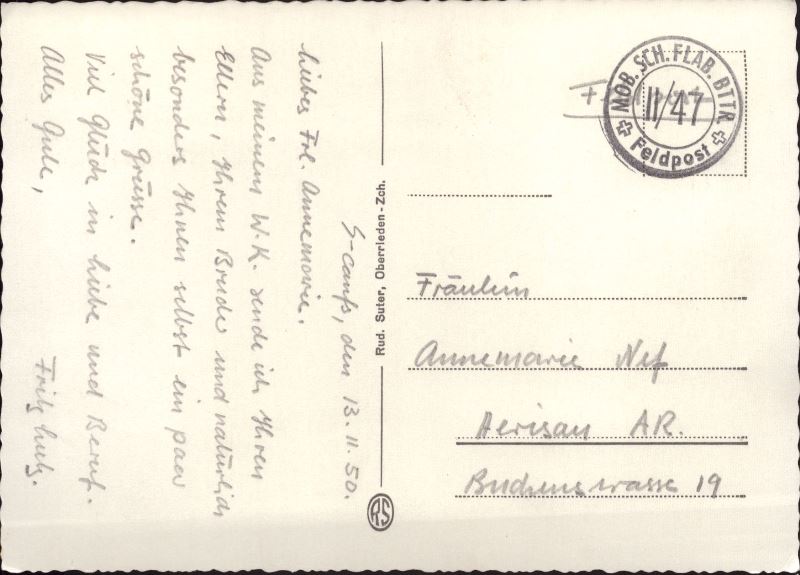 S-canfs, den 13.11.50.
Liebes Frl. Annemarie.
Aus meinem W.K. sende ich Ihren
Eltern, Ihrem Bruder und natürlich
besonders Ihnen selbst ein paar
schöne Grüsse.
Viel Glück in Liebe und Beruf.
Alles Gute,
Fritz
Rud. Suter, Oberrieden-Zch.
RS
MOB. SCH. FLAB. BTTR.
II/47
Feldpost
Fräulein
Annemarie Nef
Herisau AR.
19